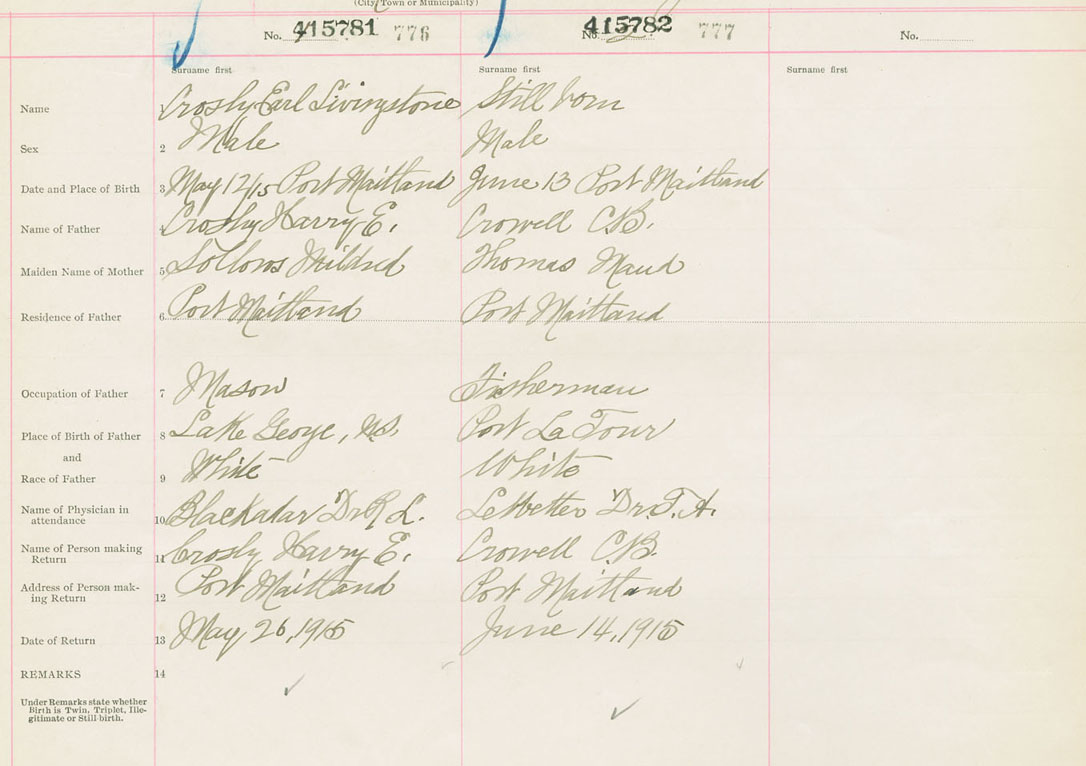 (City, Town or Municipality)
No. 415781 776
No. 415782 777
No.
Surname first
Surname first
Surname first
Name Crosby Earl Livingstone Still born
Sex 2 Male Male
Date and Place of Birth 3 May 12/15 Port Maitland June 13 Port Maitland
Name of Father 4 Crosby Harry E. Crowell C.B.
Maiden Name of Mother 5 Sollows Mildred Thomas Maud
Residence of Father 6 Port Maitland Port Maitland
Occupation of Father 7 Mason Fisherman
Place of Birth of Father 8 Lake George, N.S. Port LaTour
and
Race of Father 9 White White
Name of Physician in
attendance 10 Blackadar Dr R L. Letbetter Dr. T. A.
Name of Person making
Return 11 Crosby Harry E. Crowell C.B.
Address of Person mak-
ing Return 12 Port Maitland Port Maitland
Date of Return 13 May 26, 1915 June 14, 1915
REMARKS 14
Under Remarks state whether
Birth is Twin, Triplet, Ille-
gitimate or Still-birth.